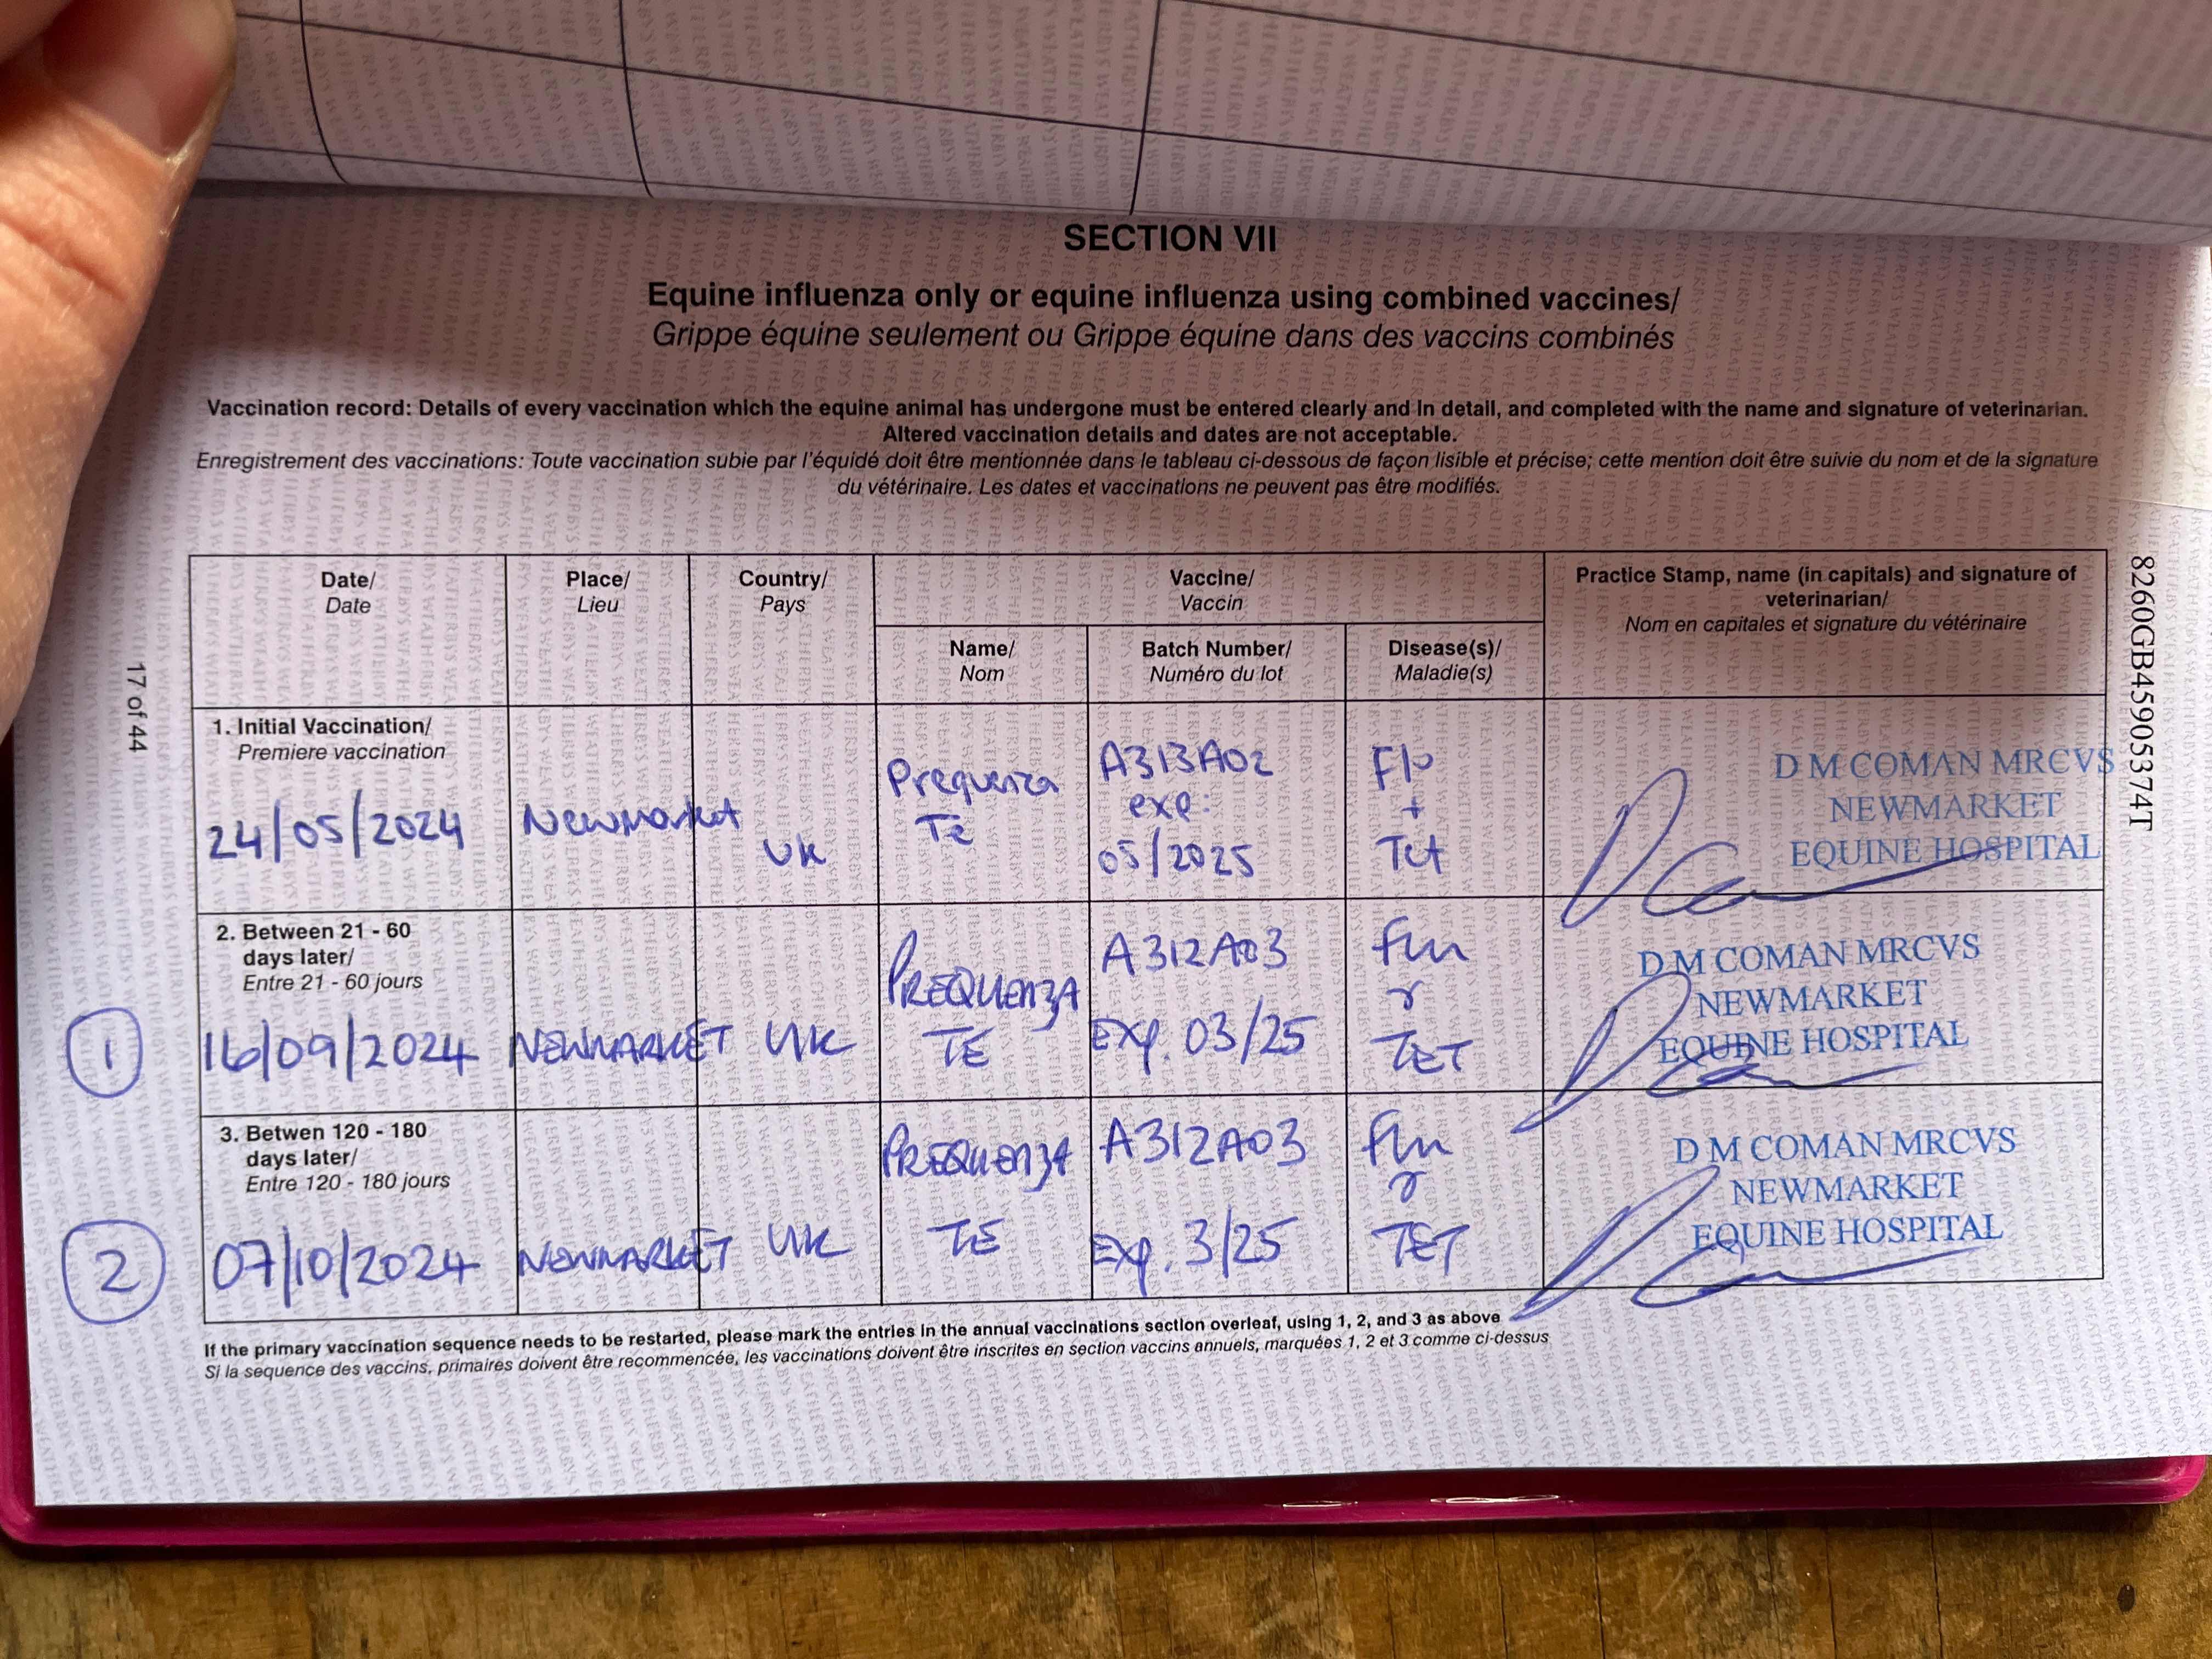 SECTION VII
Equine influenza only or equine influenza using combined vaccines/
Grippe équine seulement ou Grippe équine dans des vaccins combinés
Vaccination record: Details of every vaccination which the equine animal has undergone must be entered clearly and in detail, and completed with the name and signature of veterinarian.
Altered vaccination details and dates are not acceptable.
Enregistrement des vaccinations: Toute vaccination subie par l'équidé doit être mentionnée dans le tableau ci-dessous de façon lisible et précise; cette mention doit être suivie du nom et de la signature
du vétérinaire. Les dates et vaccinations ne peuvent pas être modifiés.
Date/
Date
Place/
Lieu
Country/
Pays
Vaccine/
Vaccin
Name/
Nom
Batch Number/
Numéro du lot
Disease(s)/
Maladie(s)
Practice Stamp, name (in capitals) and signature of
veterinarian/
Nom en capitales et signature du vétérinaire
1. Initial Vaccination/
Premiere vaccination
24/05/2024
Newmarket
UK
Prequenza
Te
A313A02
exp:
05/2025
Flu
+
Tet
D M COMAN MRCVS
NEWMARKET
EQUINE HOSPITAL
2. Between 21 - 60
days later/
Entre 21 - 60 jours
1
16/09/2024
NEWMARKET
UK
PREQUENZA
TE
A312A03
Exp. 03/25
flu
TET
D M COMAN MRCVS
NEWMARKET
EQUINE HOSPITAL
3. Betwen 120 - 180
days later/
Entre 120 - 180 jours
2
07/10/2024
NEWMARKET
UK
PREQUENZA
TE
A312A03
Exp. 3/25
flu
TET
D M COMAN MRCVS
NEWMARKET
EQUINE HOSPITAL
If the primary vaccination sequence needs to be restarted, please mark the entries in the annual vaccinations section overleaf, using 1, 2, and 3 as above
Si la sequence des vaccins, primaires doivent être recommencée, les vaccinations doivent être inscrites en section vaccins annuels, marquées 1, 2 et 3 comme ci-dessus
17 of 44
8260GB45905374T